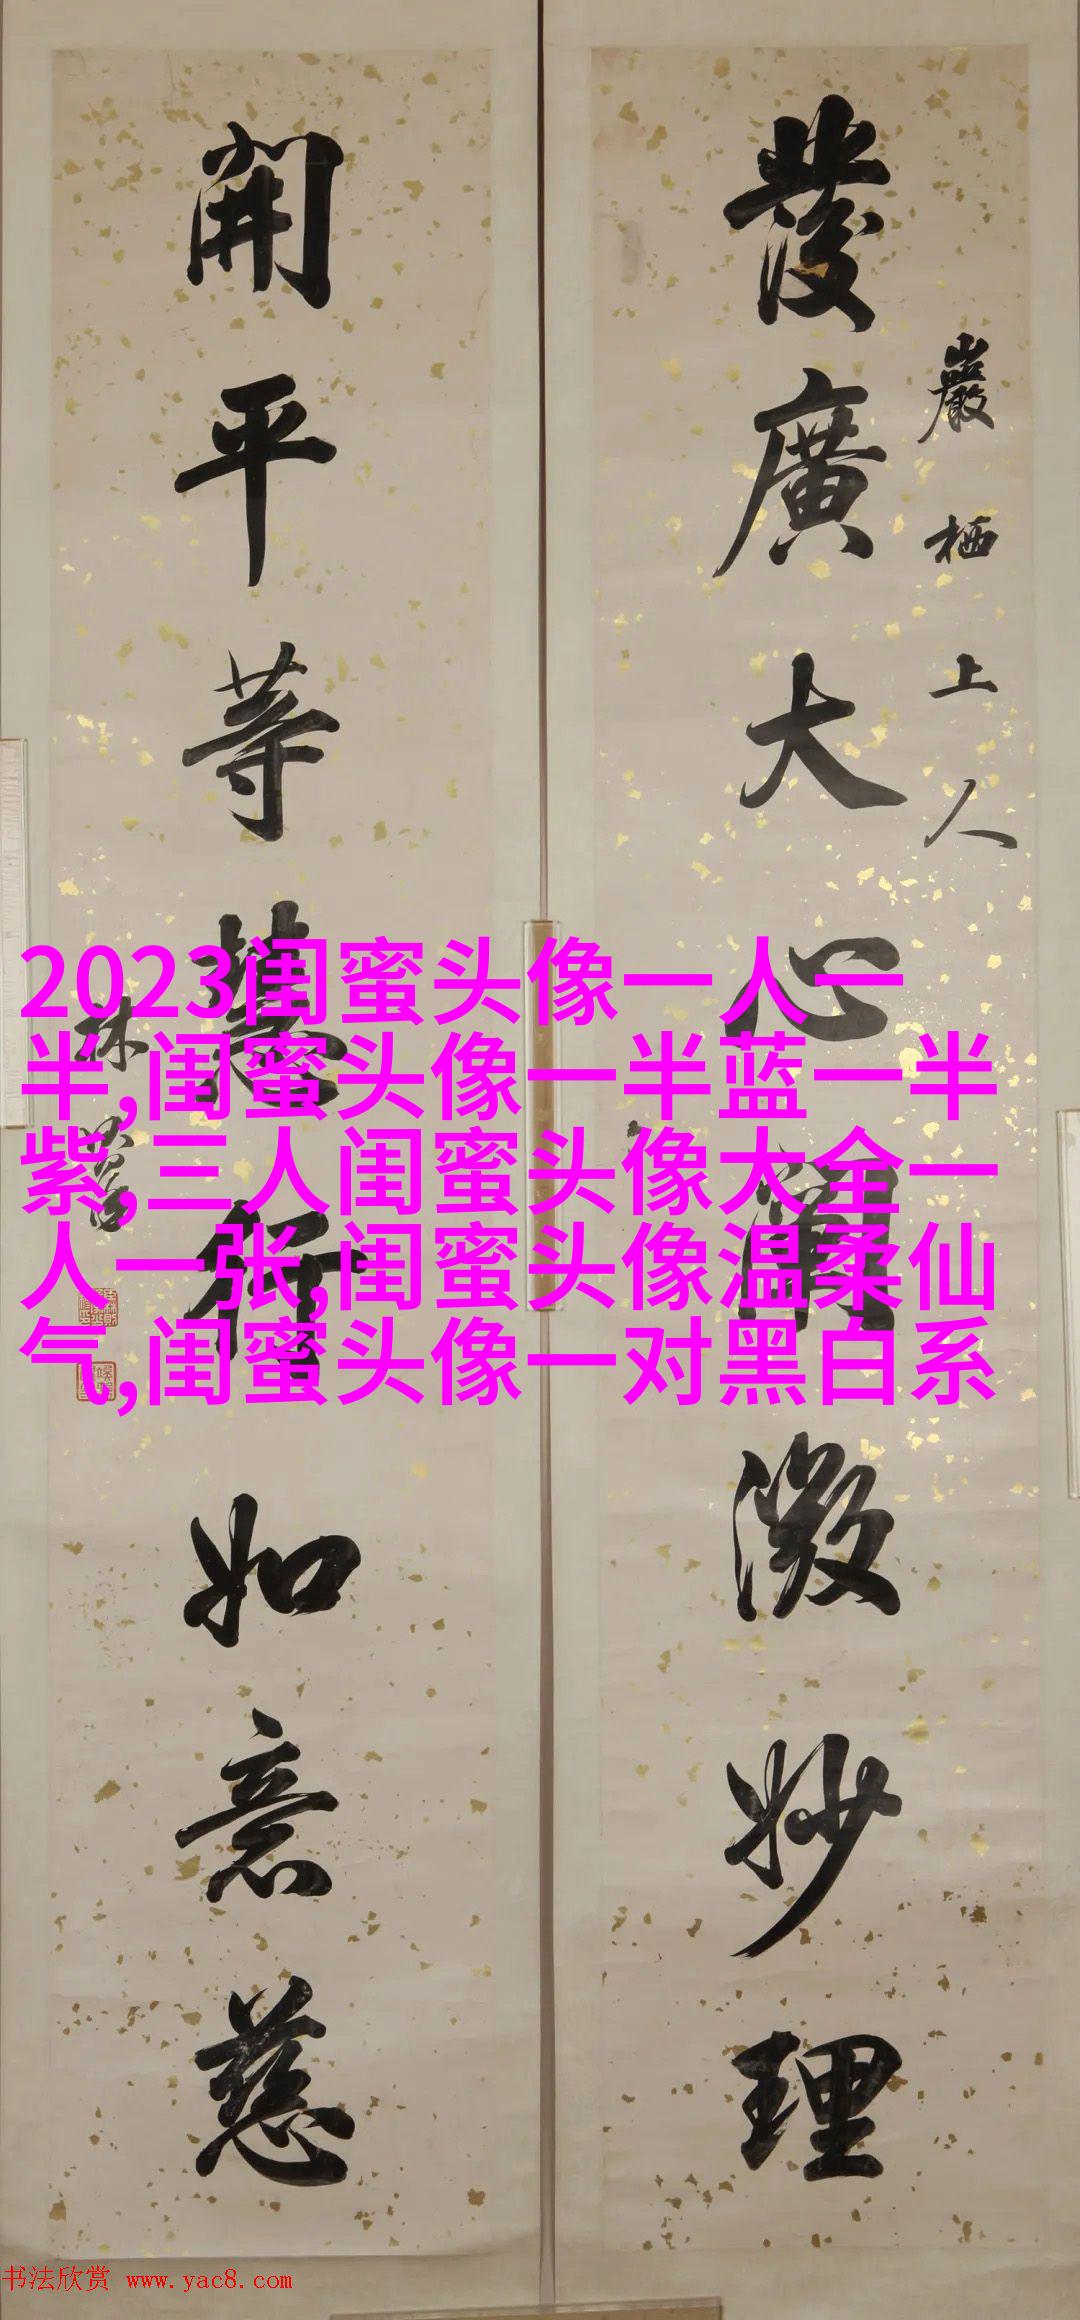 巖栖上人
發廣大心微妙理
開平等行如意慈
林
2023闺蜜头像一人一
半,闺蜜头像一半蓝一半
紫,三人闺蜜头像大全一
人一张,闺蜜头像温柔仙
气,闺蜜头像一对黑白系
书法欣赏 www.yac8.com